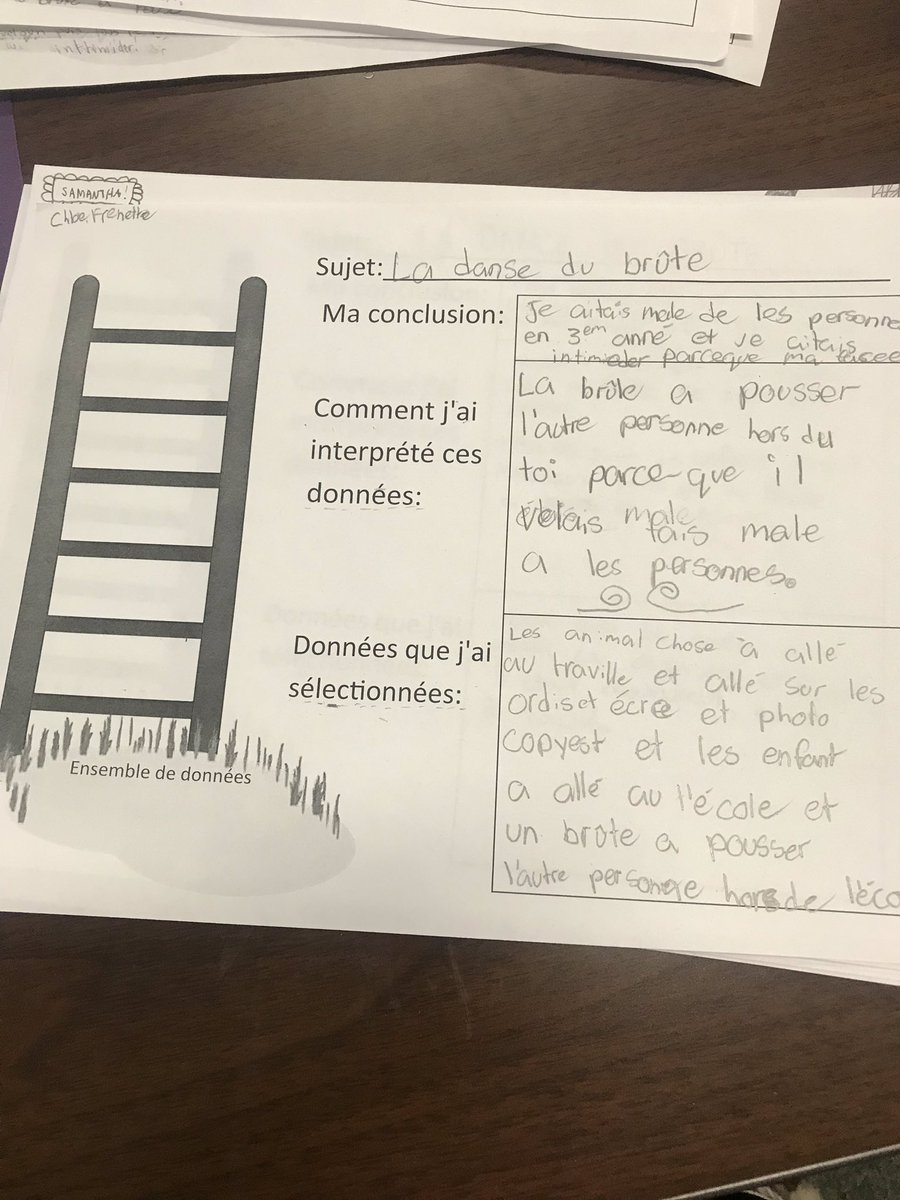 intimider.
SAMANTHA!
Chloe.Frenette
Sujet: La danse du brûte
Ma conclusion:
Je aitais male de les personne
en 3em anné et je aitais
intimieder parceque ma
Comment j'ai
interprété ces
données:
La brûle a pousser
l'autre personne hors du
toi parce-que il
male
fais male
a les personnes.
Données que j'ai
sélectionnées:
Les animal chose à allé
au traville et allé sur les
ordiset écree et photo
copyest et les enfant
a allé au l'école et
un brûte a pousser
l'autre de l'éco
Ensemble de données